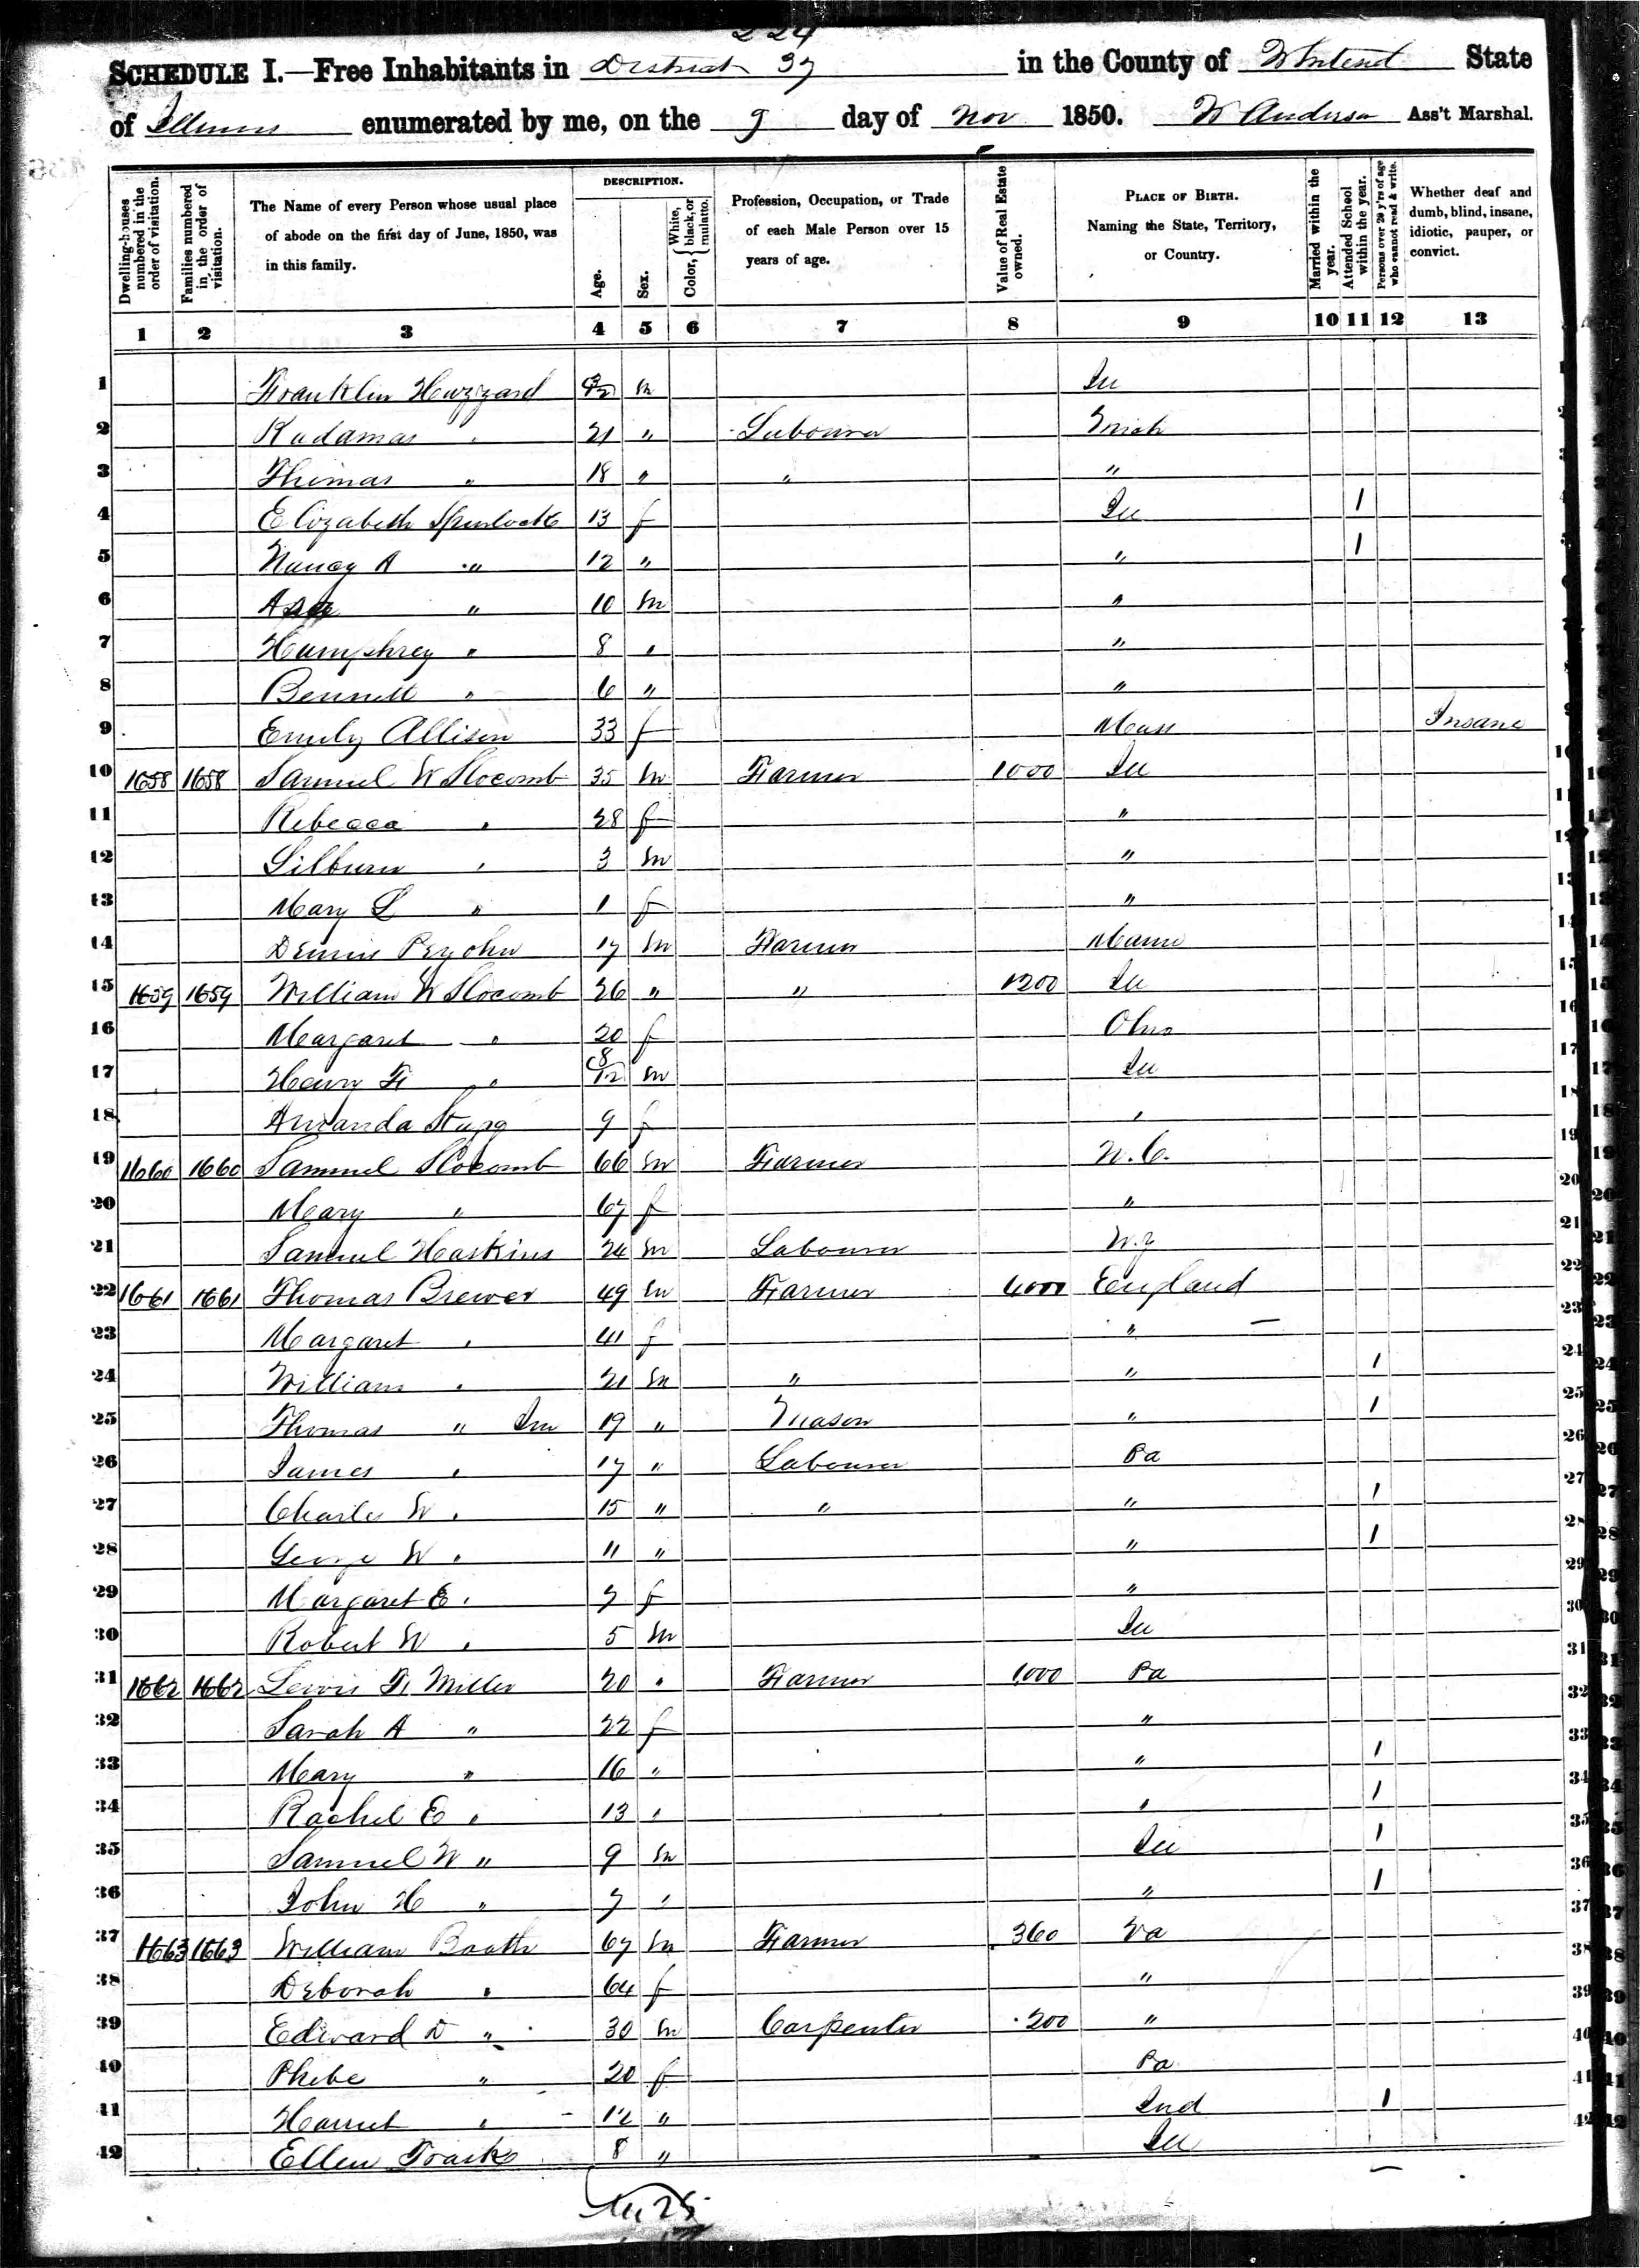 224
SCHEDULE I.—Free Inhabitants in District 37 in the County of State
of Illinois enumerated by me, on the 9 day of Nov 1850. W Anderson Ass't Marshal.
Dwelling-houses numbered in the order of visitation.
Families numbered in the order of visitation.
The Name of every Person whose usual place of abode on the first day of June, 1850, was in this family.
DESCRIPTION.
Age.
Sex.
Color, { White, black, or mulatto.
Profession, Occupation, or Trade of each Male Person over 15 years of age.
Value of Real Estate owned.
PLACE OF BIRTH. Naming the State, Territory, or Country.
Married within the year.
Attended School within the year.
Persons over 20 y'rs of age who cannot read & write.
Whether deaf and dumb, blind, insane, idiotic, pauper, or convict.
1 2 3 4 5 6 7 8 9 10 11 12 13
1 Franklin Huzzard m Ill
2 Radamas " 21 " Labourer Mich
3 Thomas " 18 " " "
4 Elizabeth Spurlock 13 f Ill 1
5 Nancy A " 12 " " 1
6 Asa " 10 m "
7 Humphrey " 8 " "
8 Bennett " 6 " "
9 Emily Allison 33 f Mass Insane
10 1658 1658 Samuel W Slocomb 35 m Farmer 1000 Ill
11 Rebecca " 28 f "
12 Silburn " 3 m "
13 Mary L " 1 f "
14 Dennis 17 m Farmer Maine
15 1659 1659 William W Slocomb 26 " " 1200 Ill
16 Margaret " 20 f Ohio
17 Henry F " 8/12 m Ill
18 Amanda Stapp 9 f "
19 1660 1660 Samuel Slocomb 66 m Farmer N.C.
20 Mary " 67 f "
21 Samuel Haskins 24 m Labourer N.Y
22 1661 1661 Thomas Brewer 49 m Farmer 4000 England
23 Margaret " 41 f "
24 William " 21 m " " 1
25 Thomas " Jun 19 " Mason " 1
26 James " 17 " Labourer Pa
27 Charles W " 15 " " " 1
28 George W " 11 " " 1
29 Margaret E " 7 f "
30 Robert W " 5 m Ill
31 1662 1662 Lewis F. Miller 20 " Farmer 1000 Pa
32 Sarah A " 22 f "
33 Mary " 16 " " 1
34 Rachel E " 13 " " 1
35 Samuel W " 9 m Ill 1
36 John H " 7 " " 1
37 1663 1663 William Booth 67 m Farmer 360 Va
38 Deborah " 64 f "
39 Edward D " 30 m Carpenter 200 "
40 Phebe " 20 f Pa
41 Harriet " 12 " Ind 1
42 Ellen Trask 8 " Ill